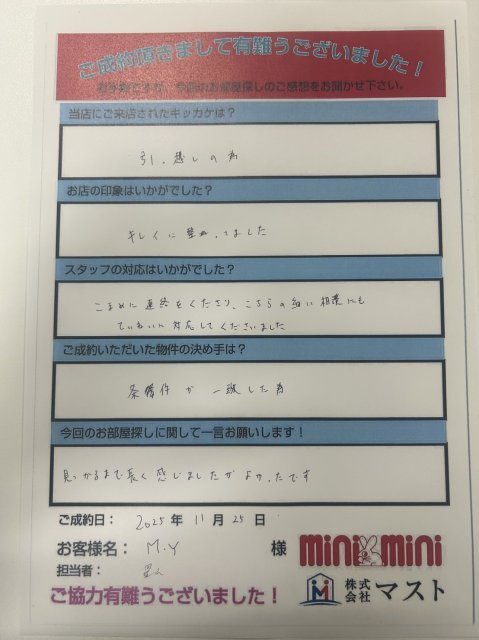 ご成約頂きまして有難うございました！
お手数ですが、今回のお部屋探しのご感想をお聞かせ下さい。
当店にご来店されたキッカケは？
引っ越しの為
お店の印象はいかがでした？
キレイに整っていました
スタッフの対応はいかがでした？
こまめに連絡をくださり、こちらの細い相談にも
ていねいに対応してくださいました
ご成約いただいた物件の決め手は？
条件が一致した為
今回のお部屋探しに関して一言お願いします！
見つかるまで長く感じましたがよかったです
ご成約日： 2025年 11月 25日
お客様名： M.Y 様
mini mini
担当者：
株式会社 マスト
ご協力有難うございました！